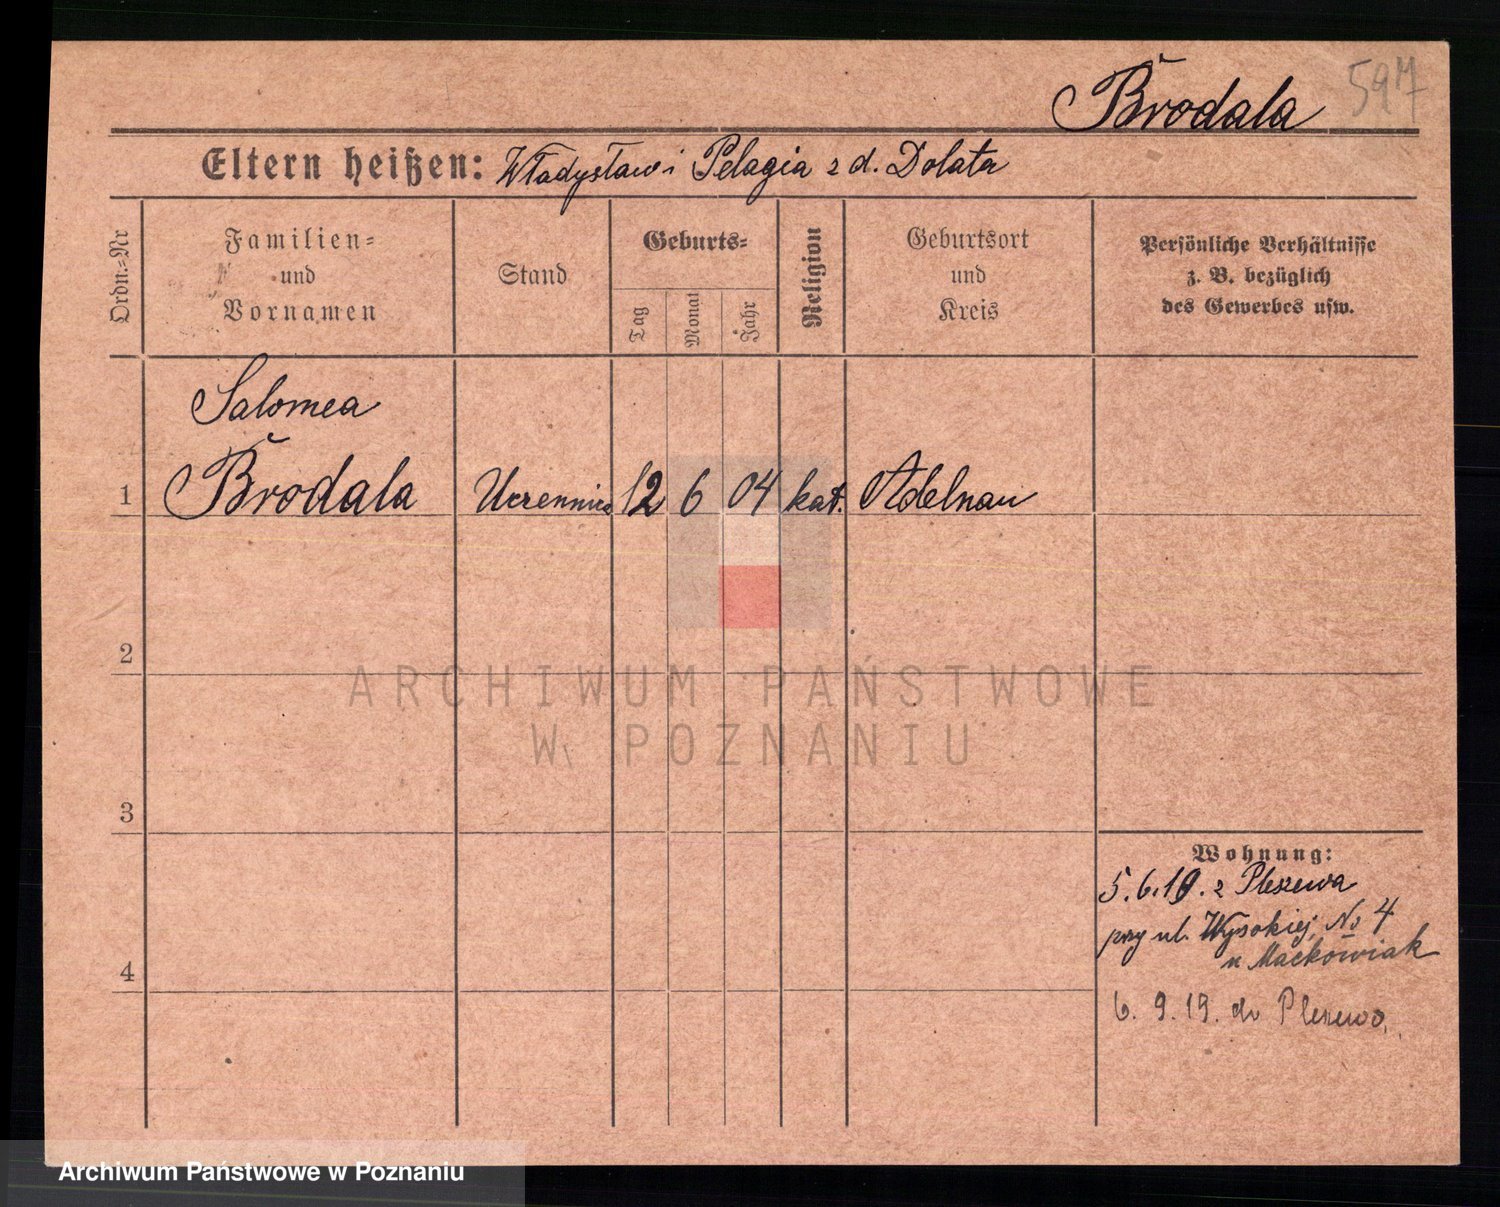 Brodala 597
Eltern heißen: Władysław i Pelagia z d. Dolata
Ordn.-Nr
Familien-
und
Vornamen
Stand
Geburts-
Tag
Monat
Jahr
Religion
Geburtsort
und
Kreis
Persönliche Verhältnisse
z. B. bezüglich
des Gewerbes usw.
Salomea
1 Brodala Uczennica 12 6 04 kat. Adelnau
2
ARCHIWUM PAŃSTWOWE
W POZNANIU
3
Wohnung:
5.6.19. z Pleszewa
przy ul. Wysokiej No 4
u Maćkowiak
4
6. 9. 19. do Pleszewa
Archiwum Państwowe w Poznaniu